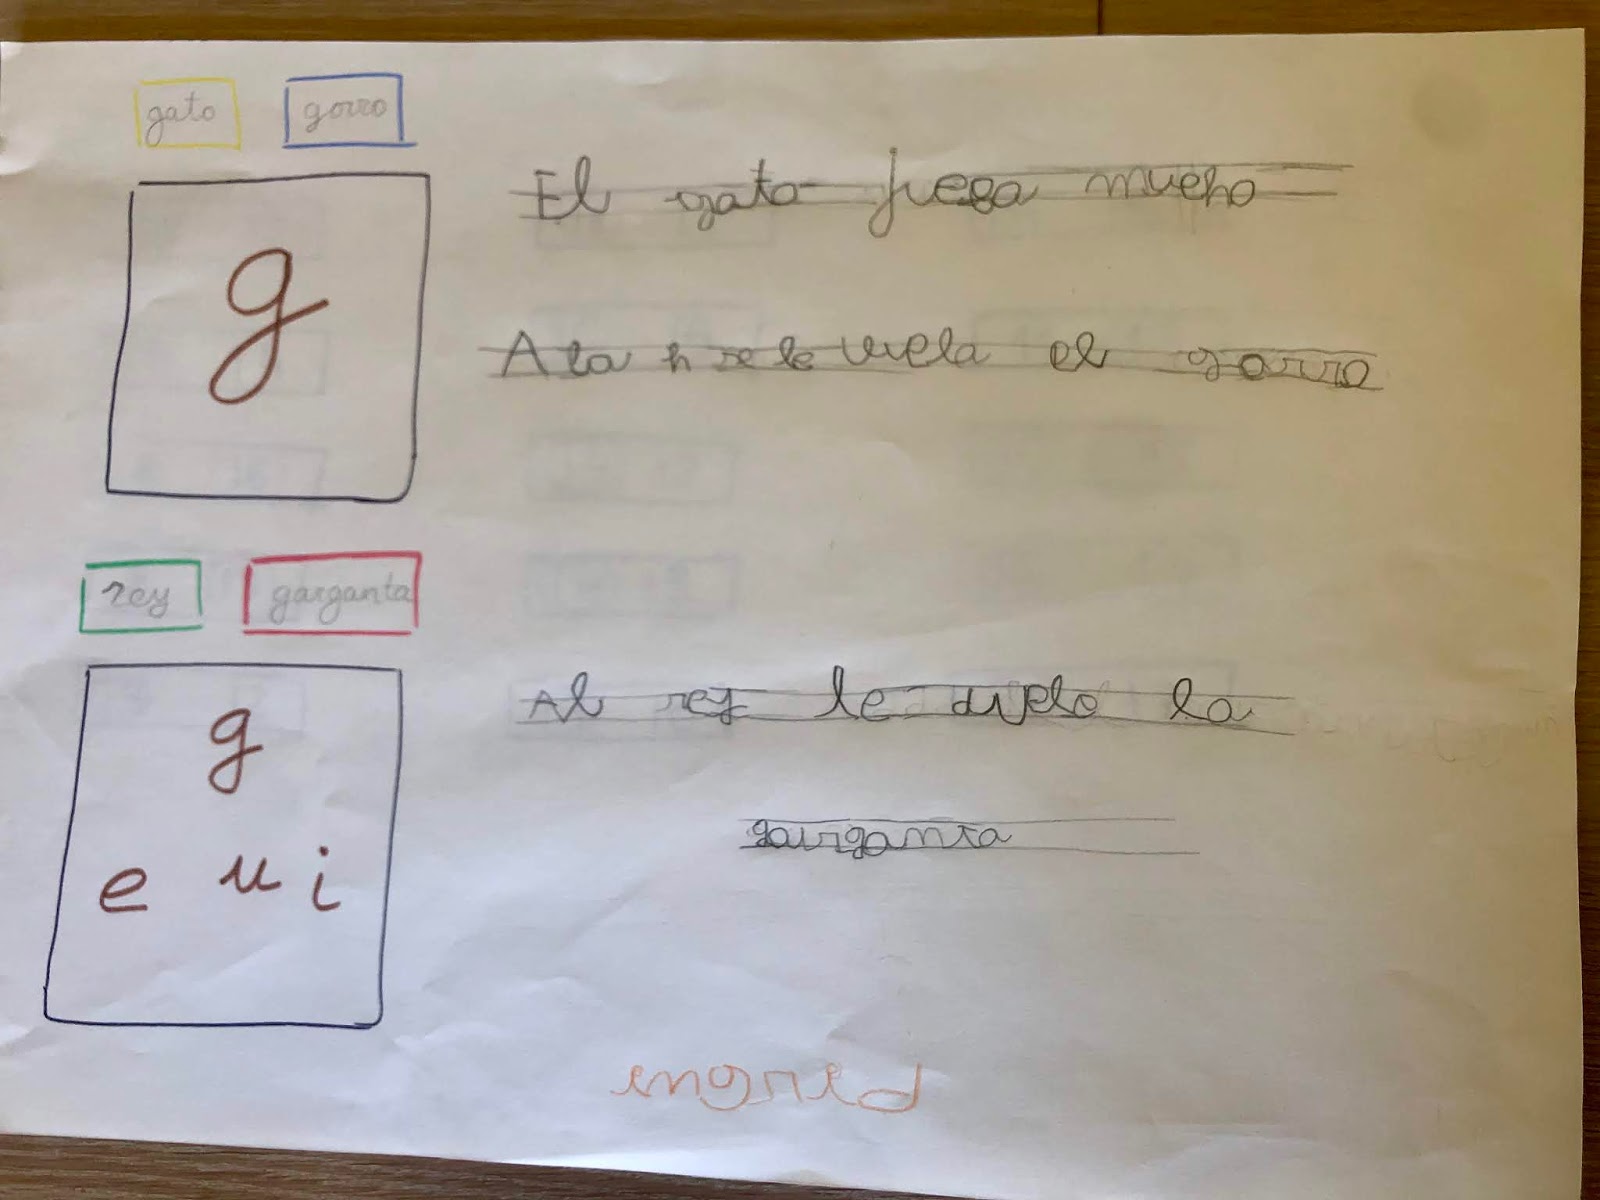 gato gorro
g
El gato juega mucho
A la h se le vuela el gorro
rey garganta
g
e u i
Al rey le duelo la
garganta